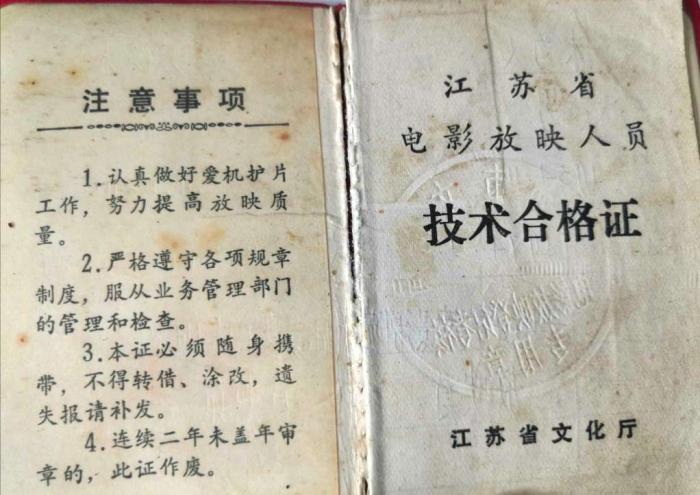 注意事项
1.认真做好爱机护片
工作，努力提高放映质
量。
2.严格遵守各项规章
制度，服从业务管理部门
的管理和检查。
3.本证必须随身携
带，不得转借、涂改，遗
失报请补发。
4.连续二年未盖年审
章的，此证作废。
江苏省
电影放映人员
技术合格证
江苏省文化厅